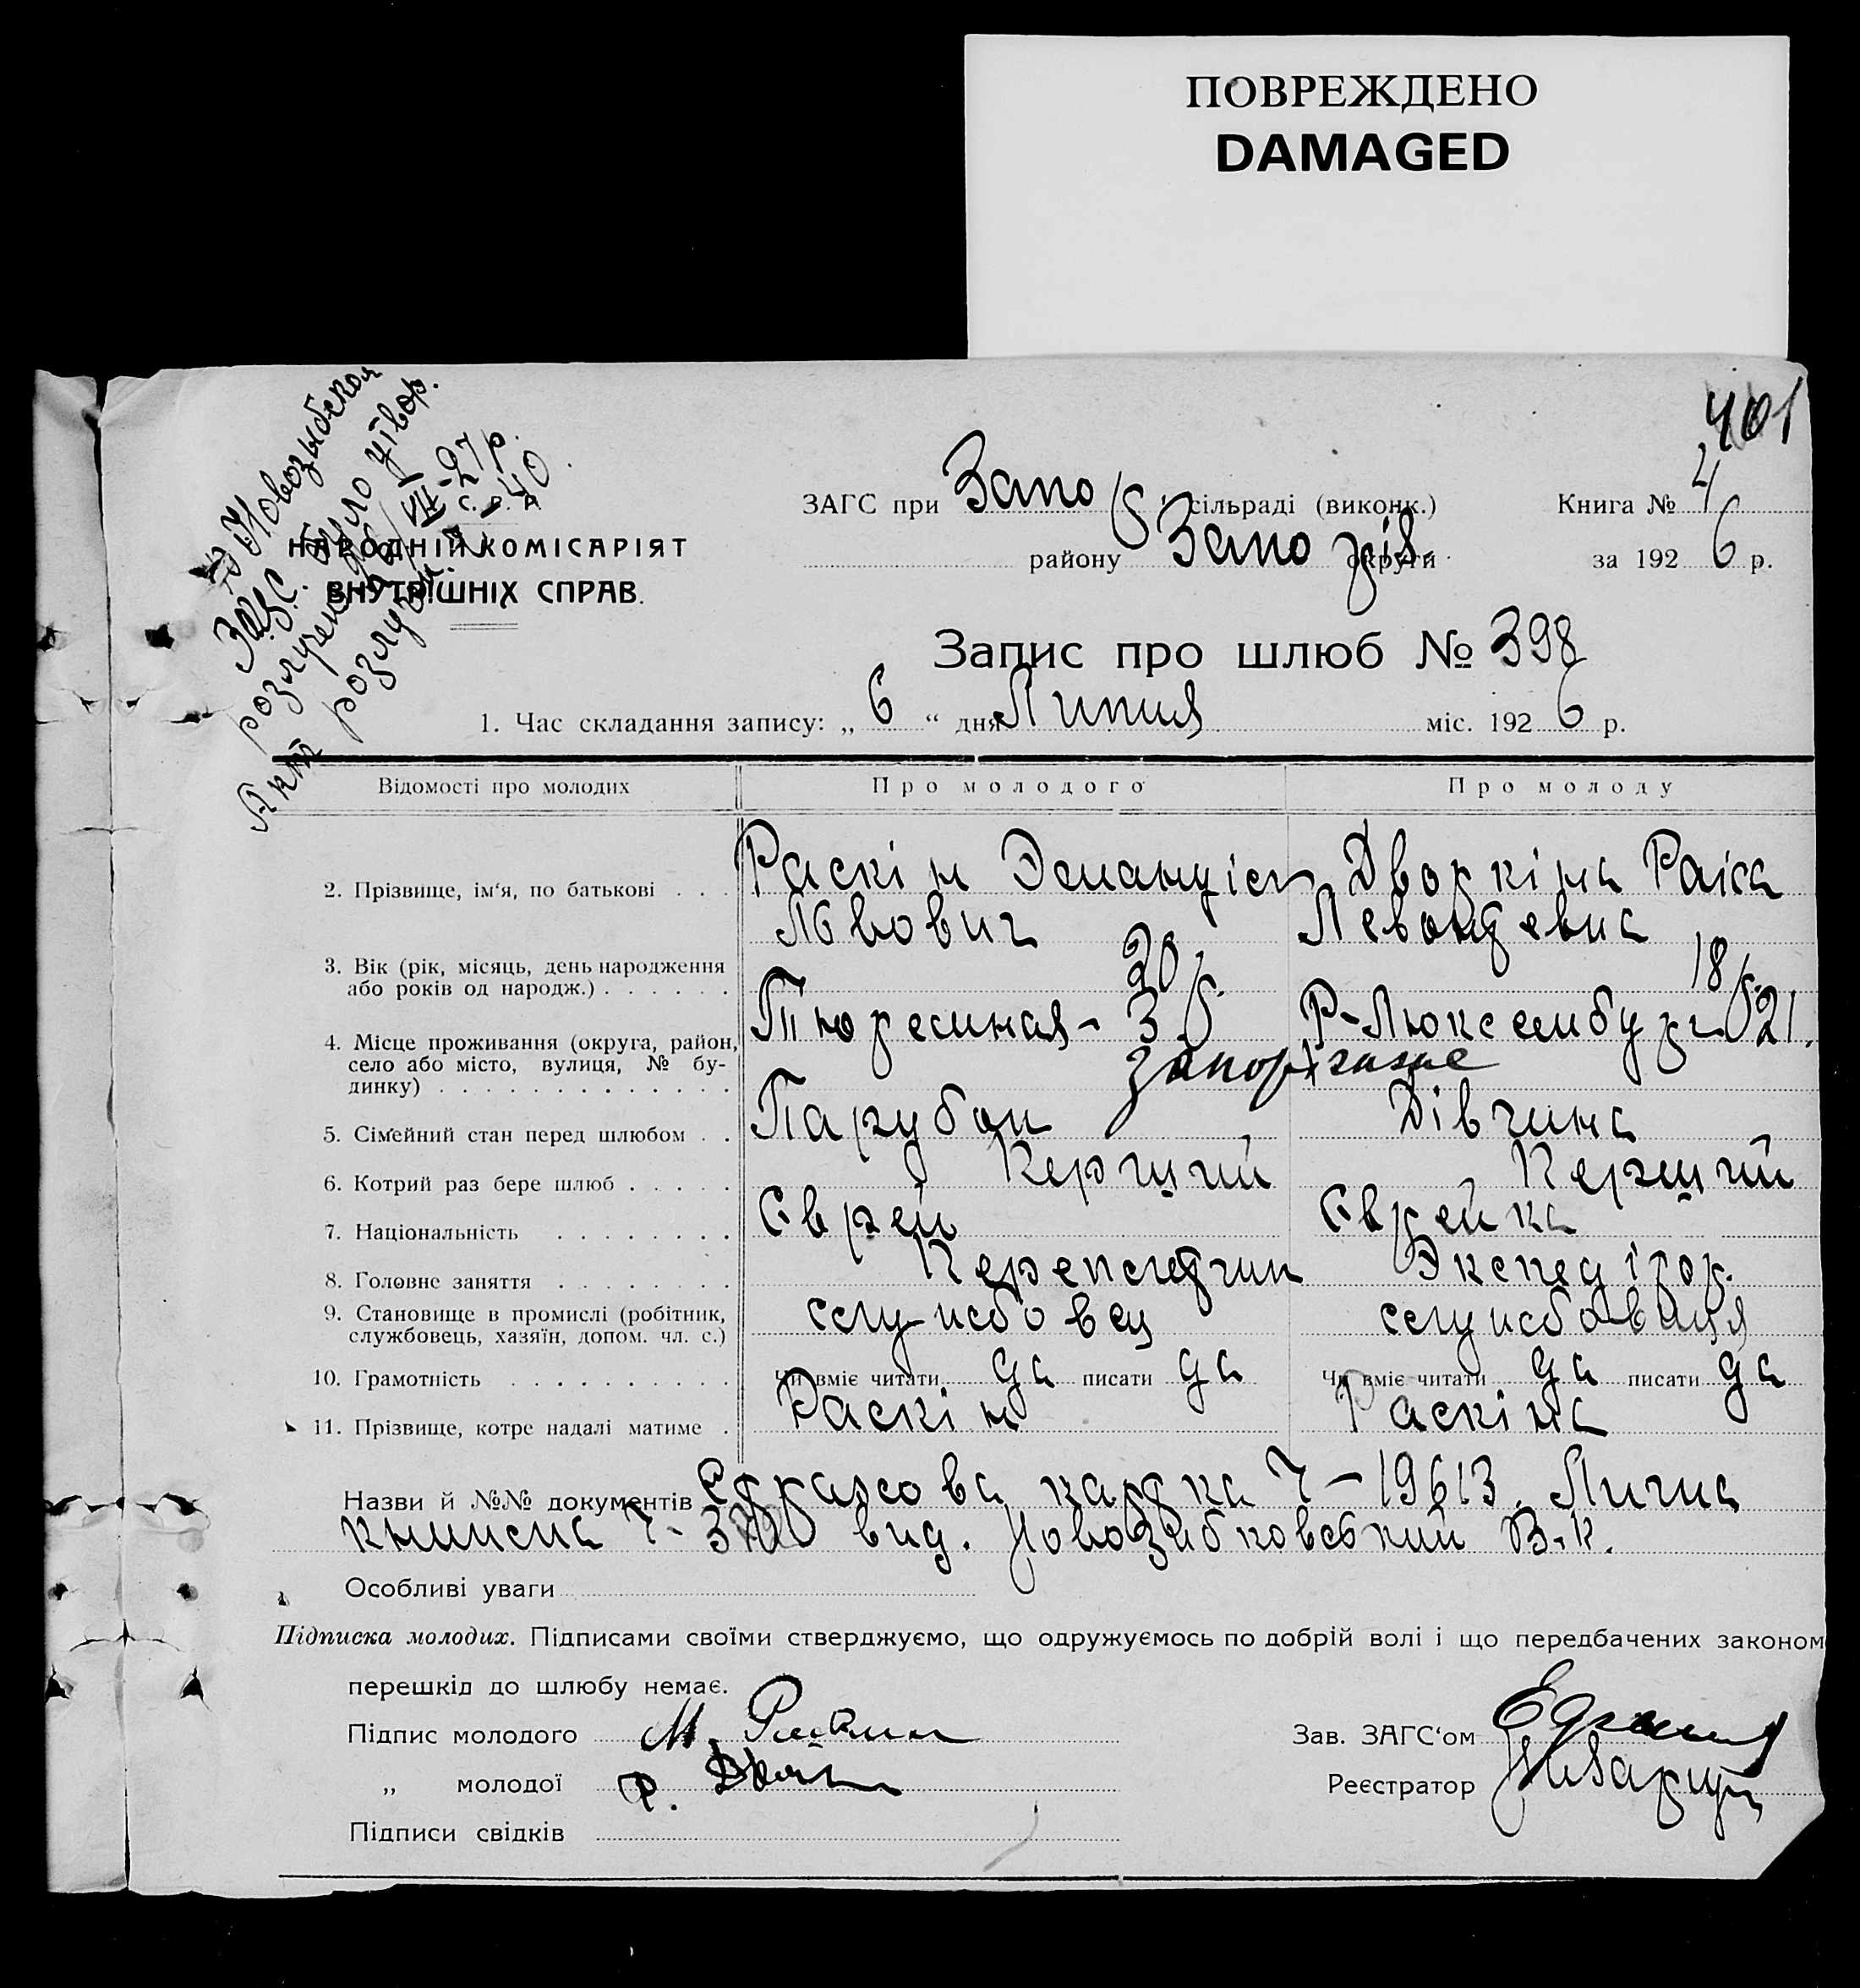 ПОВРЕЖДЕНО
DAMAGED
401
Новозыбской
Загс. було утвор.
розлучення VIII-27 р.
Акт розлуч. 40
У. С. Р. Р.
НАРОДНІЙ КОМІСАРІЯТ
ВНУТРІШНІХ СПРАВ.
ЗАГС при Запо сільраді (виконк.) Книга № 4
району Запоріз. округи за 1926 р.
Запис про шлюб № 398
1. Час складання запису: „ 6 “ дня Липня міс. 1926 р.
Відомості про молодих Про молодого Про молоду
2. Прізвище, ім‘я, по батькові . . . Раскін Дворкіна Раїса
Львович
3. Вік (рік, місяць, день народження 20 18
або років од народж.) . . . . . .
4. Місце проживання (округа, район, Тюремная- 3 Р-Люксембург 21.
село або місто, вулиця, № бу-
динку) . . . . . . . . . . . . .
5. Сім‘ейний стан перед шлюбом . . Парубок Дівчина
6. Котрий раз бере шлюб . . . . . Перший Перший
7. Національність . . . . . . . . Єврей Єврейка
8. Головне заняття . . . . . . . . Експедітор.
9. Становище в промислі (робітник, службовец службовиця
службовець, хазяїн, допом. чл. с.)
10. Грамотність . . . . . . . . . . Чи вміє читати да писати да Чи вміє читати да писати да
11. Прізвище, котре надалі матиме . Раскін Раскіна
Назви й №№ документів Страхова картка Ч-19613. Лична
книжка Ч- вид. Новозибковський В.К.
Особливі уваги
Підписка молодих. Підписами своїми стверджуємо, що одружуємось по добрій волі і що передбачених законом
перешкід до шлюбу немає.
Підпис молодого М. Раскин Зав. ЗАГС‘ом
„ молодої Р. Реєстратор
Підписи свідків